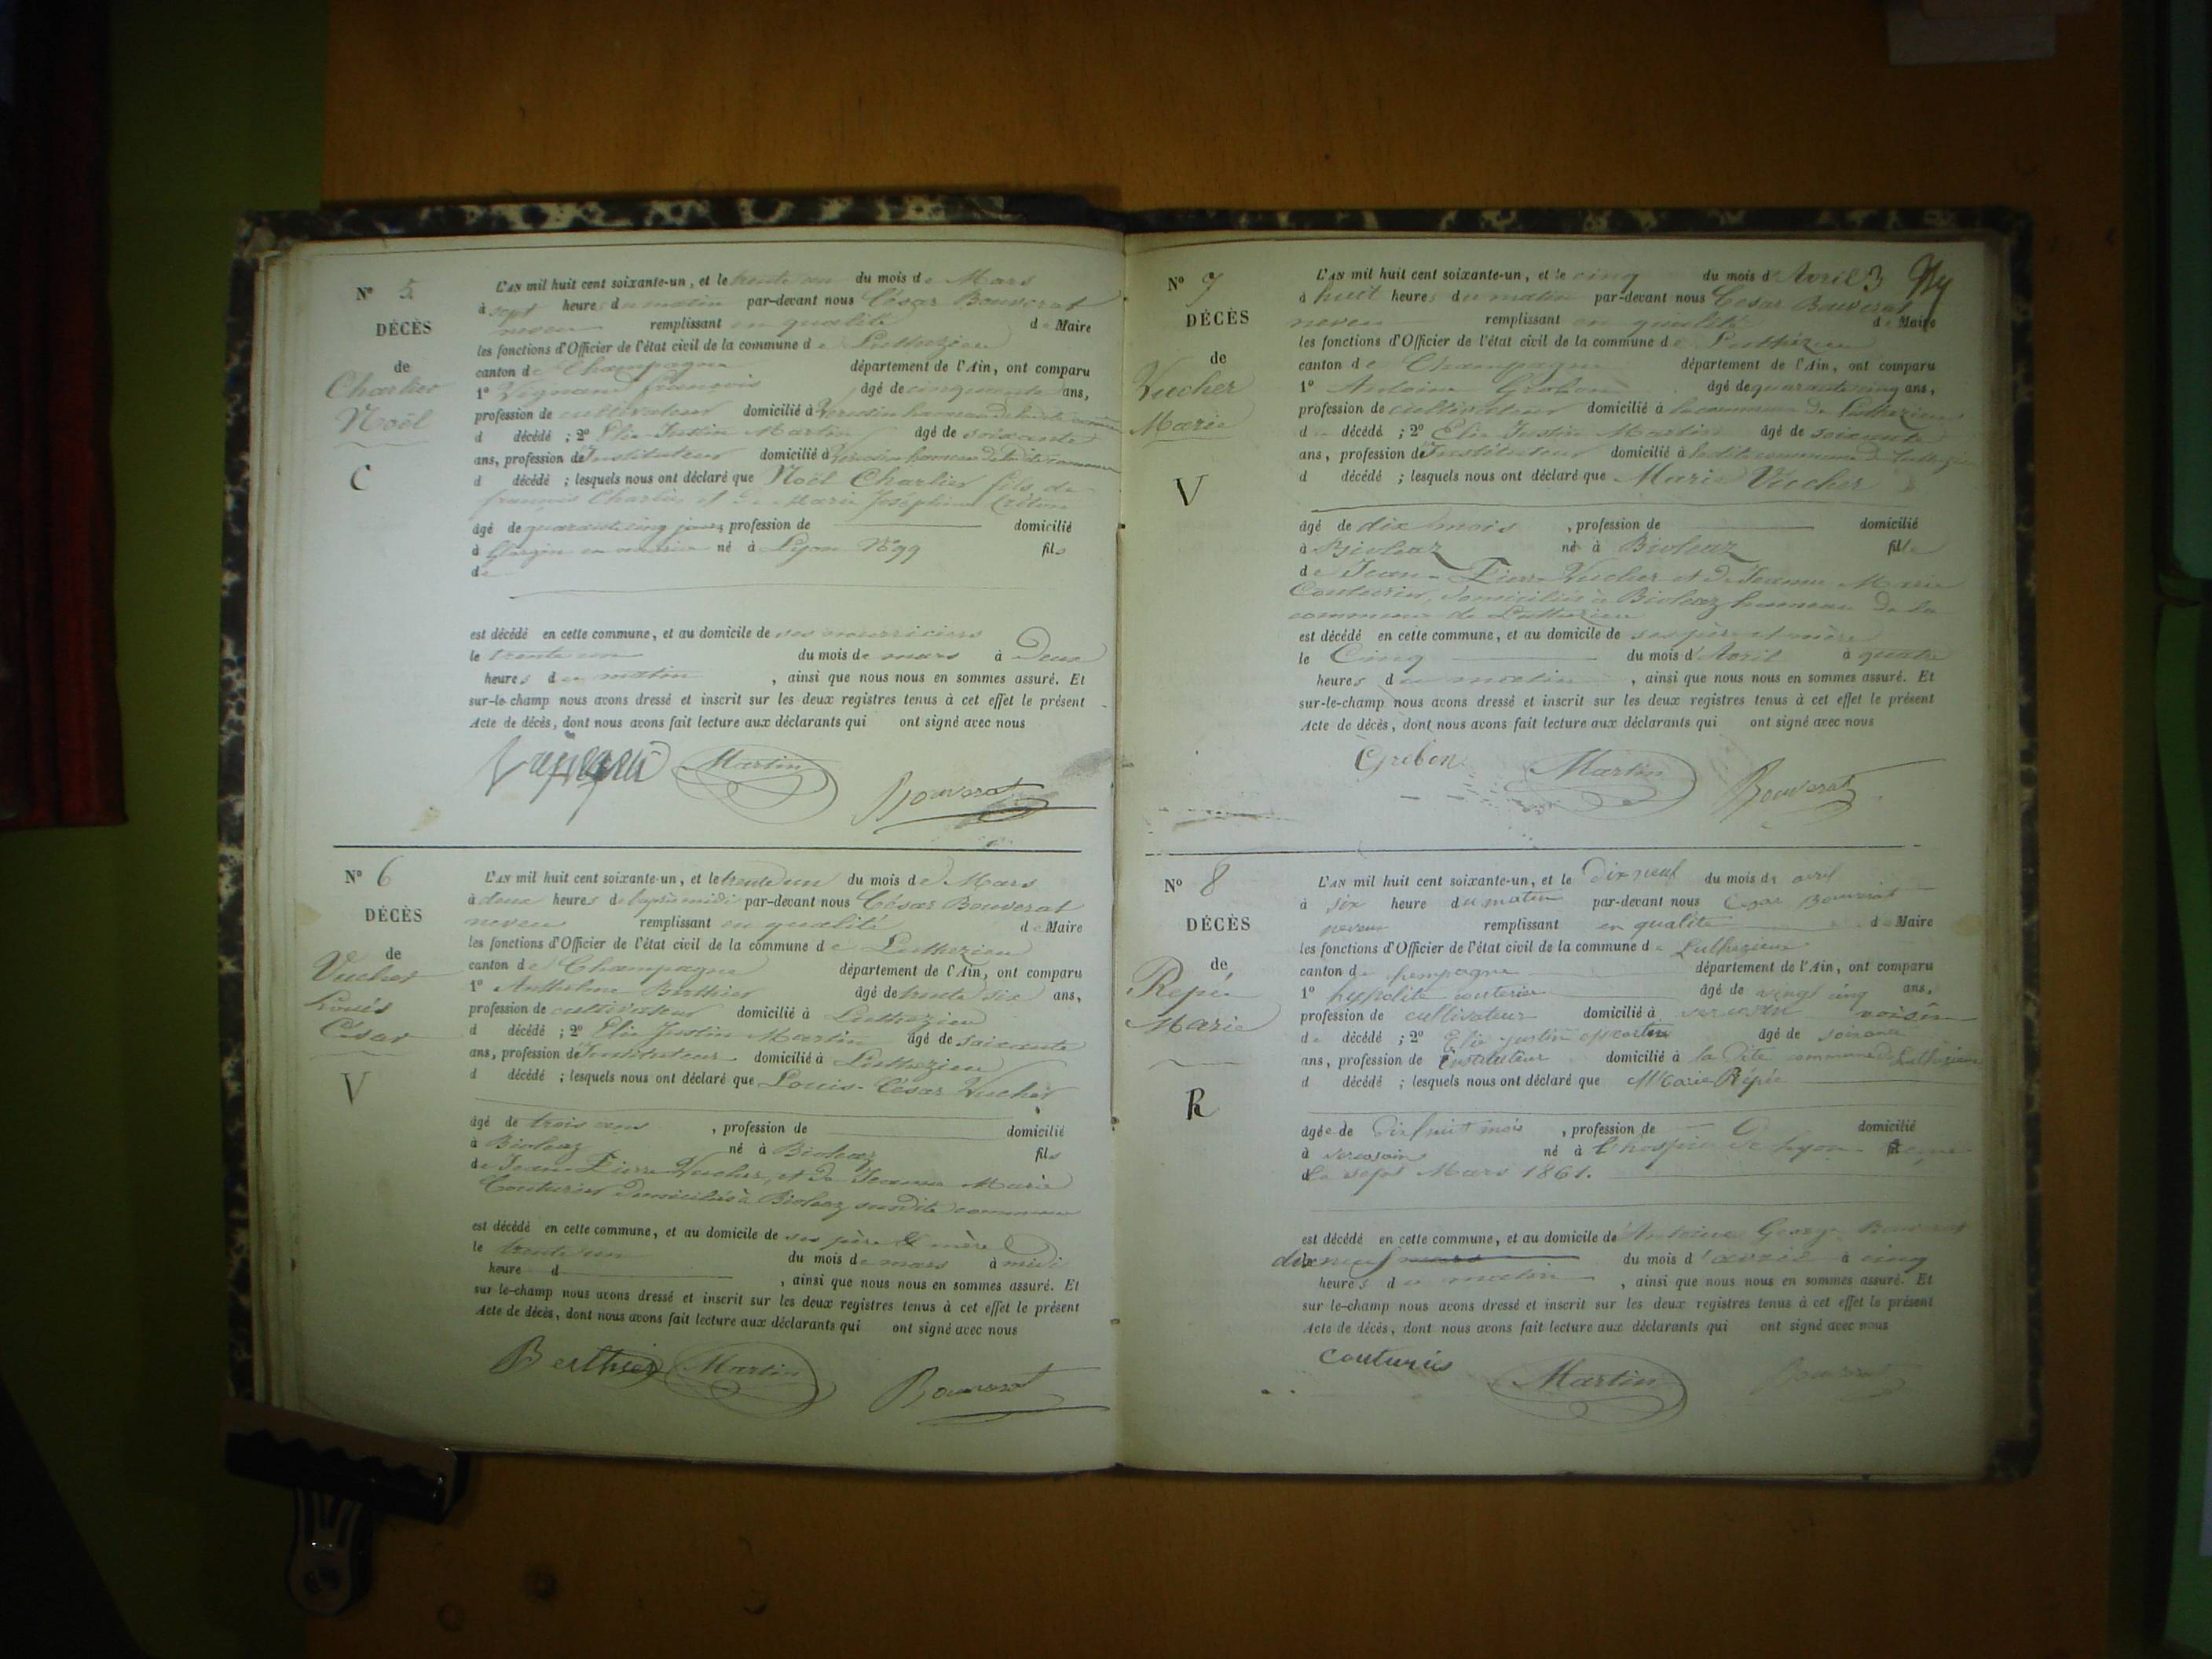 Nº 5
DÉCÈS
de
Charlier
Noël
C
L'AN mil huit cent soixante-un, et le trente un du mois de Mars
à sept heures du matin par-devant nous César Bouverat
neveu remplissant en qualité de Maire
les fonctions d'Officier de l'état civil de la commune de Luthezieu
canton de Champagne département de l'Ain, ont comparu
1º François âgé de cinquante ans,
profession de cultivateur domicilié à hameau de
d décédé ; 2º Elie Justin Martin âgé de soixante
ans, profession d'Instituteur domicilié à hameau de ladite commune
d décédé ; lesquels nous ont déclaré que Noël Charlier fils de
François Charlier et de Marie Joséphine
âgé de quarante cinq jours, profession de domicilié
à né à Lyon Nº 99 fils
de
est décédé en cette commune, et au domicile de ses nourriciers
le trente un du mois de mars à Deux
heures du matin, ainsi que nous nous en sommes assuré. Et
sur-le-champ nous avons dressé et inscrit sur les deux registres tenus à cet effet le présent
Acte de décès, dont nous avons fait lecture aux déclarants qui ont signé avec nous
Martin
Bouverat
Nº 6
DÉCÈS
de
Vucher
Louis
César
V
L'AN mil huit cent soixante-un, et le trente un du mois de Mars
à deux heures de l'après midi par-devant nous César Bouverat
neveu remplissant en qualité de Maire
les fonctions d'Officier de l'état civil de la commune de Luthezieu
canton de Champagne département de l'Ain, ont comparu
1º Anthelme Berthier âgé de trente six ans,
profession de cultivateur domicilié à Luthezieu
d décédé ; 2º Elie Justin Martin âgé de soixante
ans, profession d'Instituteur domicilié à Luthezieu
d décédé ; lesquels nous ont déclaré que Louis-César Vucher
âgé de trois ans, profession de domicilié
à Bioleaz né à Bioleaz fils
de Jean Pierre Vucher, et de Jeanne Marie
Couturier domiciliés à Bioleaz susdite commune
est décédé en cette commune, et au domicile de ses père & mère
le trente un du mois de mars à midi
heure d , ainsi que nous nous en sommes assuré. Et
sur le-champ nous avons dressé et inscrit sur les deux registres tenus à cet effet le présent
Acte de décès, dont nous avons fait lecture aux déclarants qui ont signé avec nous
Berthier Martin
Bouverat
3
Nº 7
DÉCÈS
de
Vucher
Marie
V
L'AN mil huit cent soixante-un, et le cinq du mois d'Avril
à huit heures du matin par-devant nous César Bouverat
neveu remplissant en qualité de Maire
les fonctions d'Officier de l'état civil de la commune de Luthézieu
canton de Champagne département de l'Ain, ont comparu
1º Antoine âgé de quarante cinq ans,
profession de cultivateur domicilié à la commune de Luthezieu
d décédé ; 2º Elie Justin Martin âgé de soixante
ans, profession d'Instituteur domicilié à ladite commune de Luthezieu
d décédé ; lesquels nous ont déclaré que Marie Vucher
âgé de dix mois, profession de domicilié
à Bioleaz né à Bioleaz fille
de Jean-Pierre Vucher et de Jeanne Marie
Couturier, domiciliés à Bioleaz hameau de la
commune de Luthezieu
est décédé en cette commune, et au domicile de ses père et mère
le Cinq du mois d'Avril à quatre
heures du matin, ainsi que nous nous en sommes assuré. Et
sur-le-champ nous avons dressé et inscrit sur les deux registres tenus à cet effet le présent
Acte de décès, dont nous avons fait lecture aux déclarants qui ont signé avec nous
Martin
Bouverat
Nº 8
DÉCÈS
de
Repée
Marie
R
L'AN mil huit cent soixante-un, et le Dix neuf du mois de avril
à six heure du matin par-devant nous Cesar Bouverat
neveu remplissant en qualité de Maire
les fonctions d'Officier de l'état civil de la commune de Luthezieu
canton de département de l'Ain, ont comparu
1º hyppolite couturier âgé de vingt cinq ans,
profession de cultivateur domicilié à voisin
de décédé ; 2º Elie justin Martin âgé de soixante
ans, profession de instituteur domicilié à la dite commune de Luthezieu
d décédé ; lesquels nous ont déclaré que Marie Répée
âgée de Dix huit mois, profession de domicilié
à né à l'hospice de Lyon
Le sept Mars 1861.
est décédé en cette commune, et au domicile de Antoine George Bouverat
dix neuf du mois d'avril à cinq
heures du matin, ainsi que nous nous en sommes assuré. Et
sur le-champ nous avons dressé et inscrit sur les deux registres tenus à cet effet le présent
Acte de décès, dont nous avons fait lecture aux déclarants qui ont signé avec nous
Martin
Bouverat